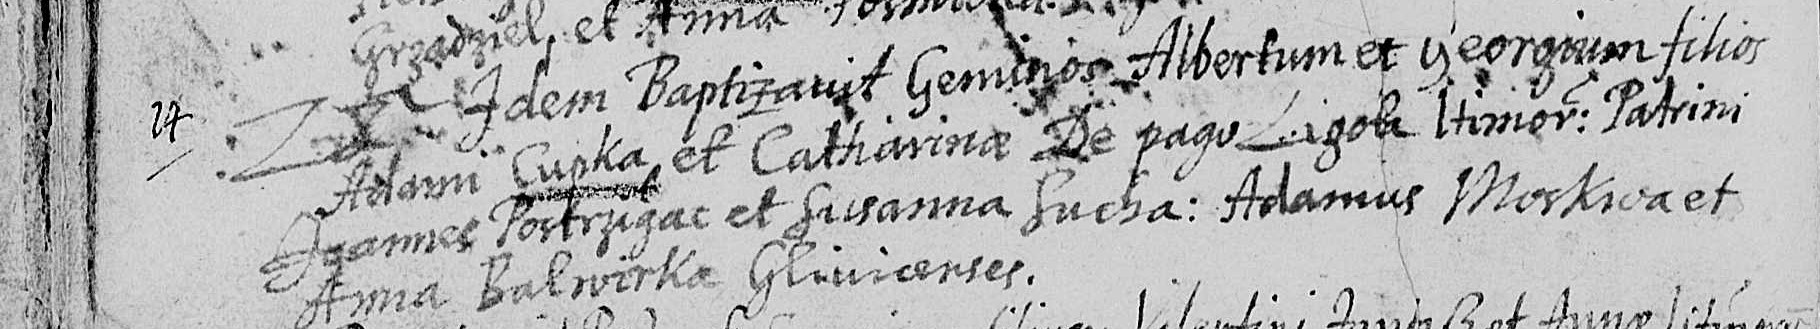 Grządziel, et Anna
24 Idem Baptizavit Geminos Albertum et Georgium filios
Adami Cupka et Catharinæ De pago Ligota ltimor: Patrini
Joannes Postrzigac et Susanna Sucha: Adamus Moskwa et
Anna Balwirka Glivicenses.
et Annæ